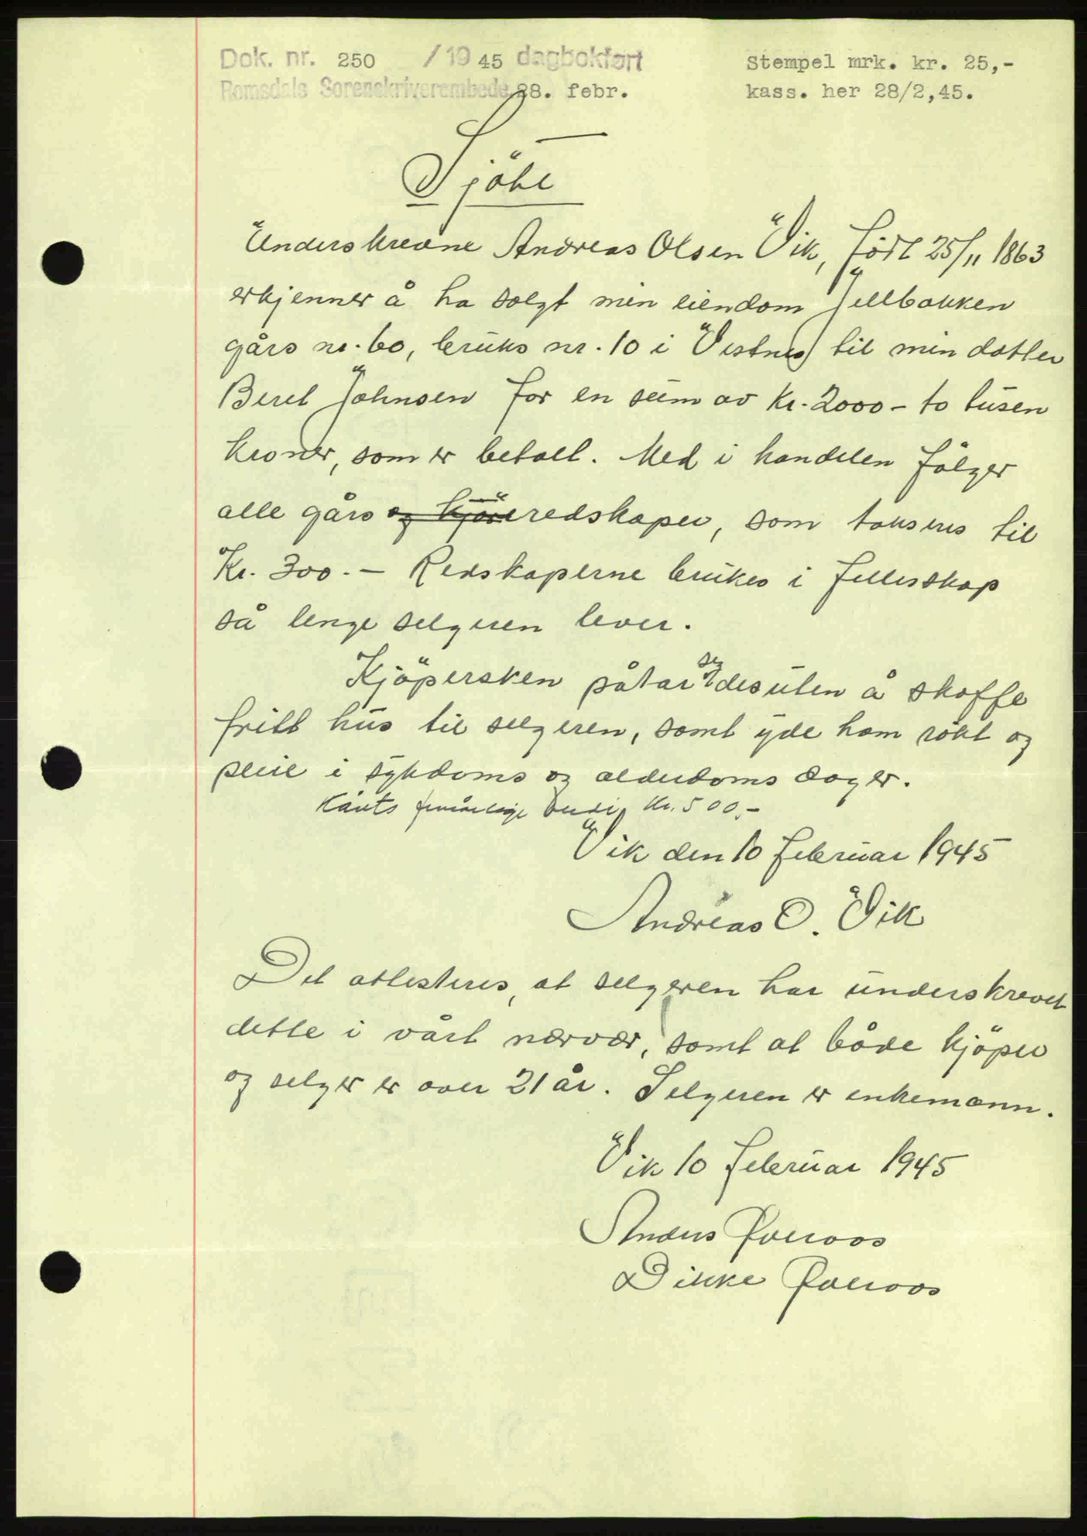 Dok. nr. 250 / 1945 dagbokført
Romsdals Sorenskriverembede 28. febr.
Stempel mrk. kr. 25,-
kass. her 28/2,45.
Skjöte
Underskrevne Andreas Olsen Vik, född 25/11 1863
erkjenner å ha solgt min eiendom Jellbakken
gårs nr. 60, bruks nr. 10 i Vestnes til min datter
Beret Johnsen for en sum av Kr. 2000 - to tusen
kroner, som er betalt. Med i handelen fölger
alle gårs og kjöreredskaper, som takseres til
Kr. 300. - Redskaperne brukes i fellesskap
så lenge selgeren lever.
Kjöpersken påtar seg desuten å skaffe
fritt hus til selgeren, samt yde ham rökt og
pleie i sykdoms og alderdoms dager.
Kårets femårlige verdi Kr. 500,-
Vik den 10 februar 1945
Andreas O. Vik
Det attesteres, at selgeren har underskrevet
dette i vårt nærvær, samt at både kjöper
og selger er over 21 år. Selgeren er enkemann.
Vik 10 februar 1945
Anders Øveraas
Dikke Øveraas